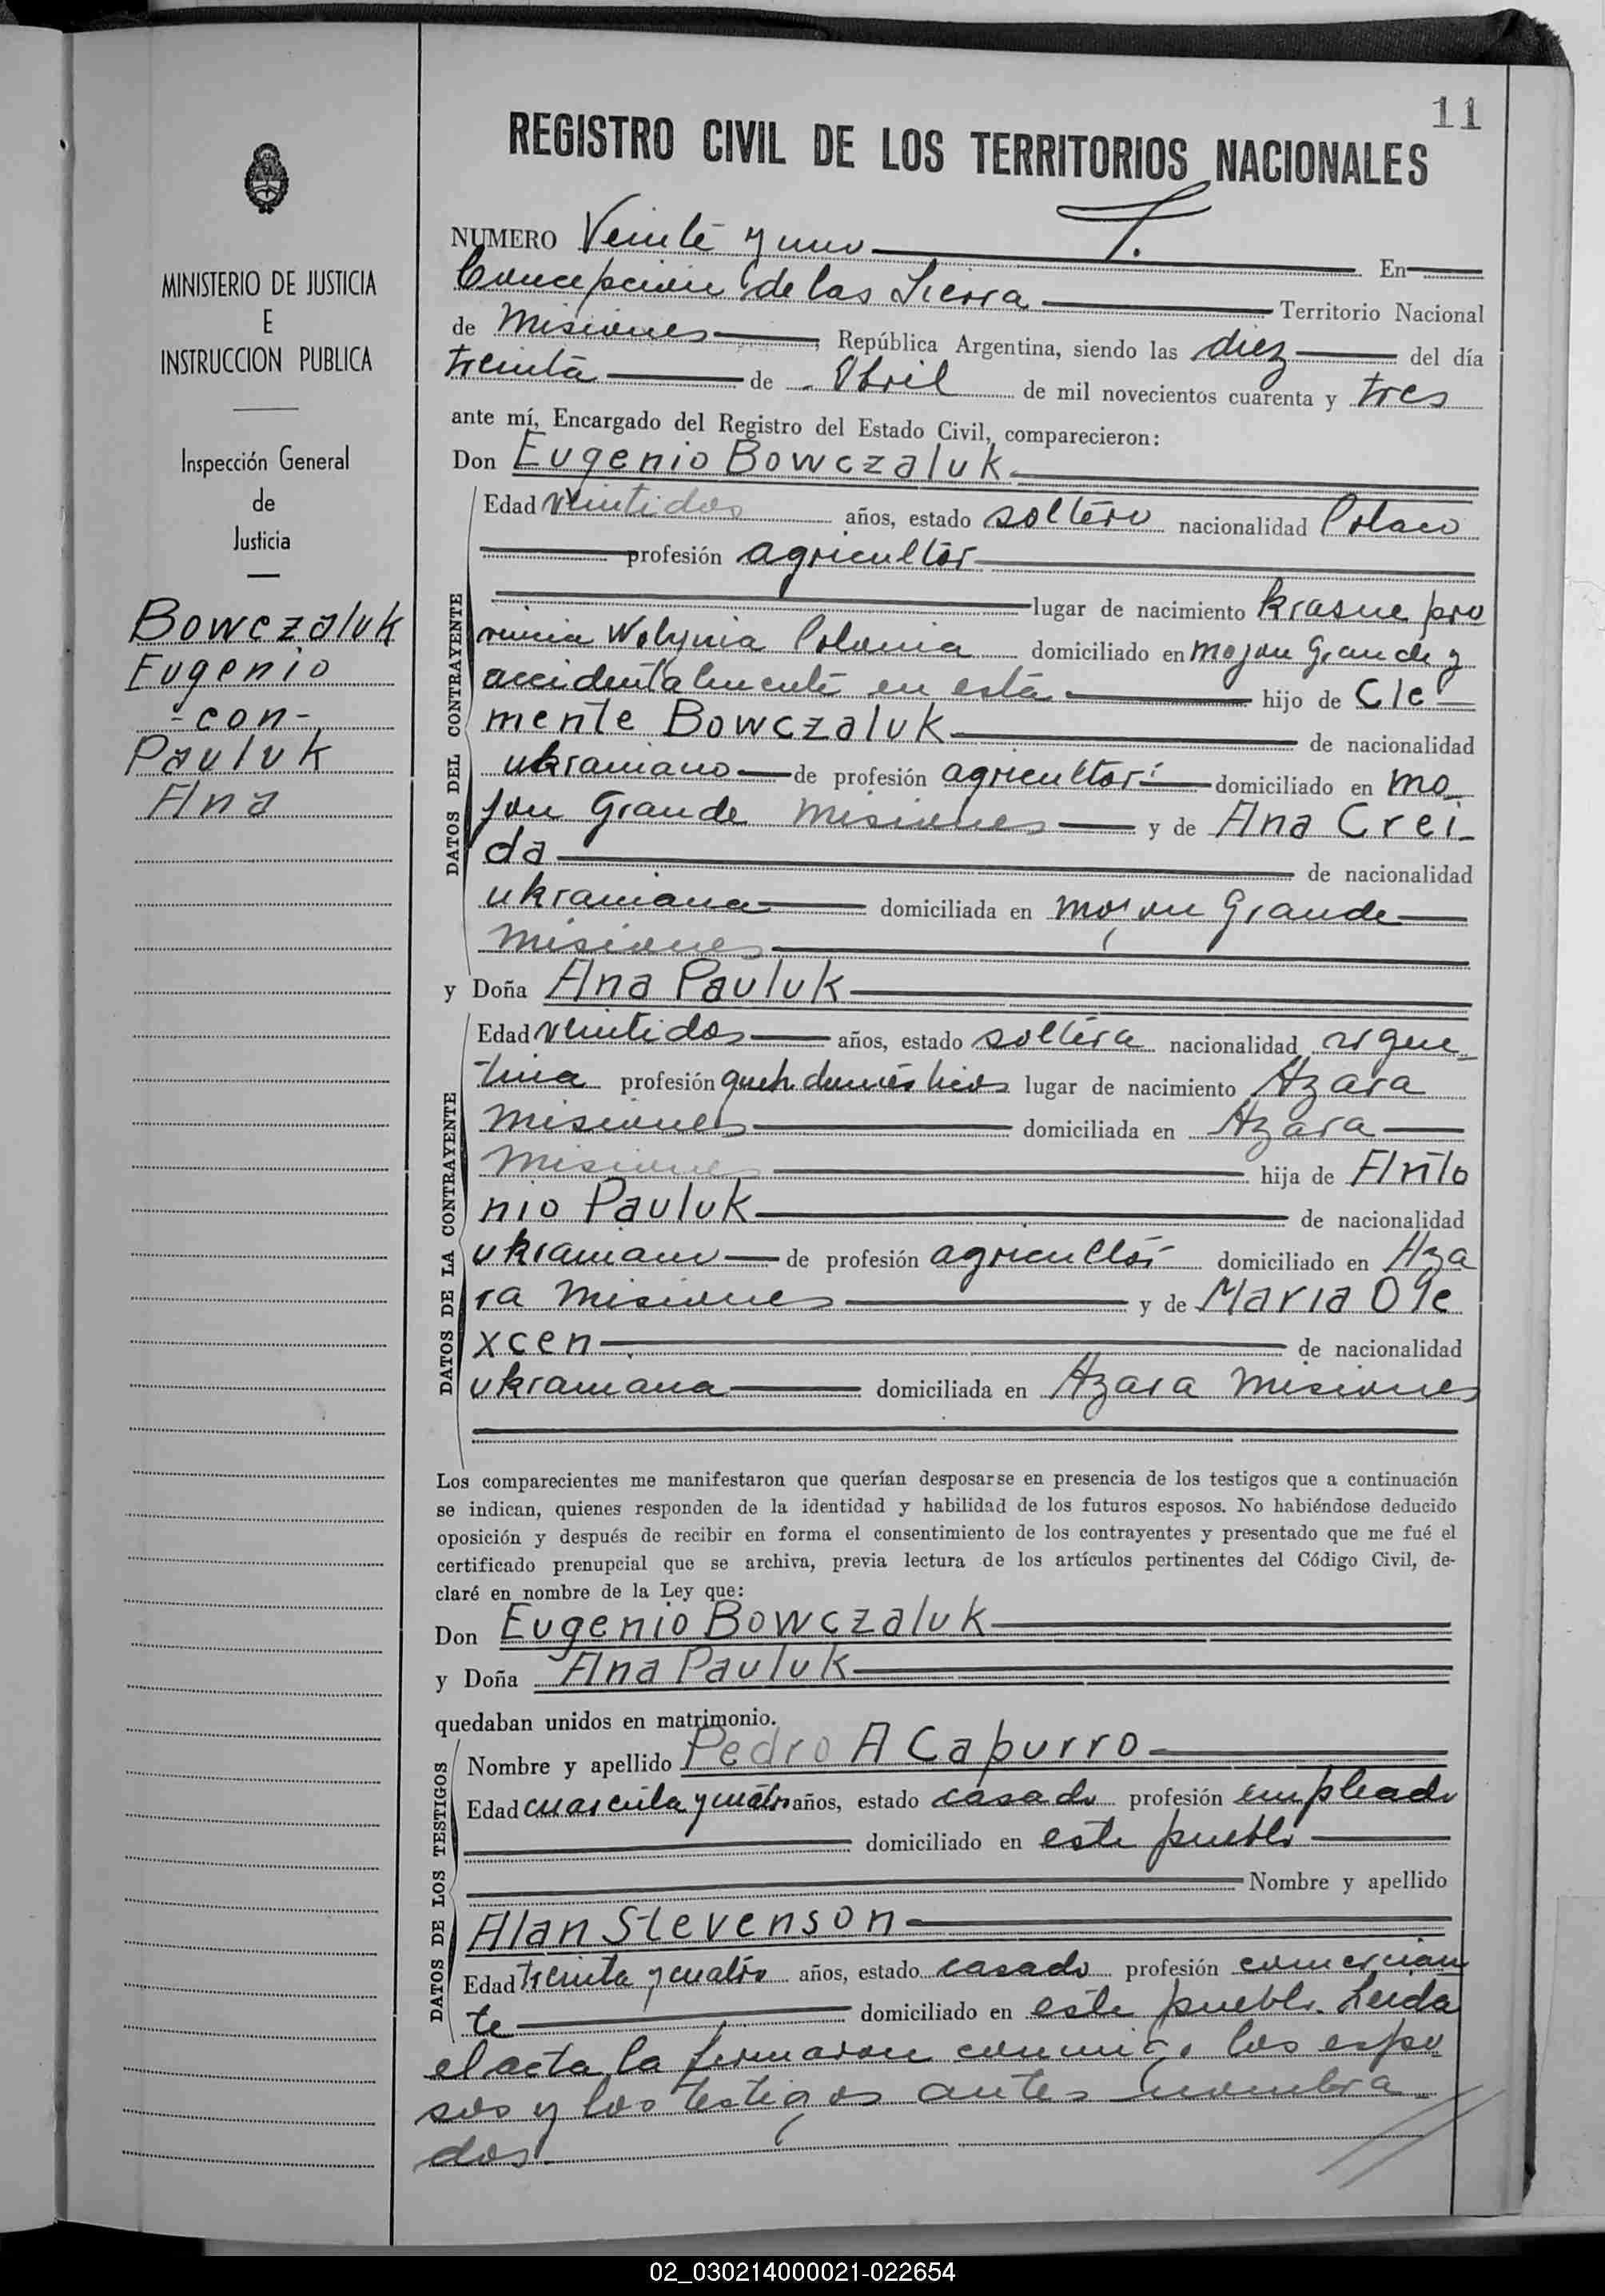 11
REGISTRO CIVIL DE LOS TERRITORIOS NACIONALES
MINISTERIO DE JUSTICIA
E
INSTRUCCION PUBLICA
Inspección General
de
Justicia
Bowczaluk
Eugenio
-con-
Pauluk
Ana
NUMERO Veinte y uno En
Concepcion de las Sierra Territorio Nacional
de Misiones, República Argentina, siendo las diez del día
treinta de Abril de mil novecientos cuarenta y tres
ante mí, Encargado del Registro del Estado Civil, comparecieron:
Don Eugenio Bowczaluk
DATOS DEL CONTRAYENTE
Edad veintidos años, estado soltero nacionalidad Polaco
profesión agricultor
lugar de nacimiento Krasne pro
vincia Wolynia Polonia domiciliado en Mojon Grande y
accidentalmente en esta hijo de Cle
mente Bowczaluk de nacionalidad
ukraniano de profesión agricultor domiciliado en Mo
jon Grande Misiones y de Ana Crei
da de nacionalidad
ukraniana domiciliada en Mojon Grande
Misiones
y Doña Ana Pauluk
DATOS DE LA CONTRAYENTE
Edad veintidos años, estado soltera nacionalidad argen
tina profesión queh. domésticos lugar de nacimiento Azara
Misiones domiciliada en Azara
Misiones hija de Anto
nio Pauluk de nacionalidad
ukraniano de profesión agricultor domiciliado en Aza
ra Misiones y de Maria Ole
xcen de nacionalidad
ukraniana domiciliada en Azara Misiones
Los comparecientes me manifestaron que querían desposarse en presencia de los testigos que a continuación
se indican, quienes responden de la identidad y habilidad de los futuros esposos. No habiéndose deducido
oposición y después de recibir en forma el consentimiento de los contrayentes y presentado que me fué el
certificado prenupcial que se archiva, previa lectura de los artículos pertinentes del Código Civil, de-
claré en nombre de la Ley que:
Don Eugenio Bowczaluk
y Doña Ana Pauluk
quedaban unidos en matrimonio.
DATOS DE LOS TESTIGOS
Nombre y apellido Pedro A Capurro
Edad cuarenta y cuatro años, estado casado profesión empleado
domiciliado en este pueblo
Nombre y apellido
Alan Stevenson
Edad treinta y cuatro años, estado casado profesión comercian
te domiciliado en este pueblo. Leida
el acta la firmaron conmigo los espo
sos y los testigos antes nombra
dos.
02_030214000021-022654